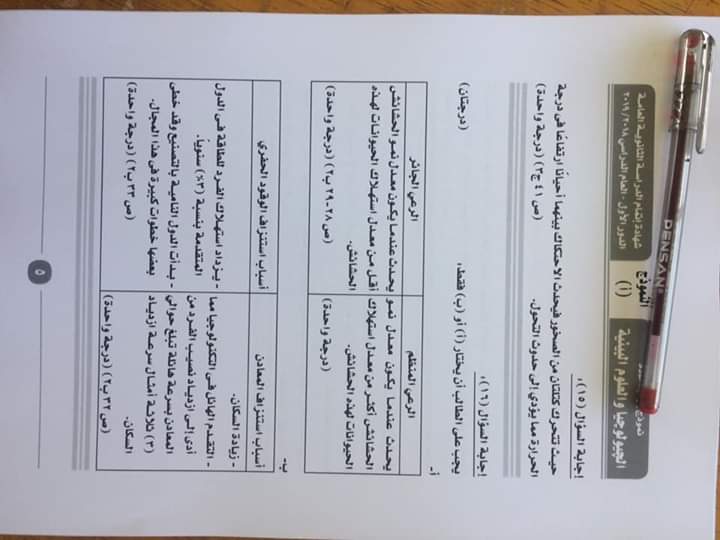 شهادة إتمام الدراسة الثانوية العامة
الدور الأول - العام الدراسي ٢٠١٨/٢٠١٩
النموذج
(أ)
نموذج
الجيولوجيا والعلوم البيئية
إجابة السؤال (١٥):
حيث تتحرك كتلتان من الصخور فيحدث الاحتكاك بينهما أحيانًا ارتفاعًا فى درجة
الحرارة مما يؤدي إلى حدوث التحول.
(ص ٤١ ج٣) (درجة واحدة)
إجابة السؤال (١٦):
يجب على الطالب أن يختار (أ) أو (ب) فقط:
(درجتان)
أ-
الرعي المنظم
الرعي الجائر
يحدث عندما يكون معدل نمو
الحشائش أكثر من معدل استهلاك
الحيوانات لهذه الحشائش.
(درجة واحدة)
يحدث عندما يكون معدل نمو الحشائش
أقل من معدل استهلاك الحيوانات لهذه
الحشائش.
(ص ٢٨-٢٩ ب٢) (درجة واحدة)
ب-
أسباب استنزاف المعادن
أسباب استنزاف الوقود الحفري
- زيادة السكان.
- التقدم الهائل فى التكنولوجيا مما
أدى إلى ازدياد نصيب الفرد من
المعادن بسرعة هائلة تبلغ حوالي
(٣) ثلاثة أمثال سرعة ازدياد
السكان.
(ص ٣٢ ب٢) (درجة واحدة)
- يزداد استهلاك الفرد للطاقة فى الدول
المتقدمة بنسبة (٣%) سنويا.
- بدأت الدول النامية بالتصنيع وقد خطى
بعضها خطوات كبيرة فى هذا المجال.
(ص ٣٣ ب٢) (درجة واحدة)
٥
DENSAN